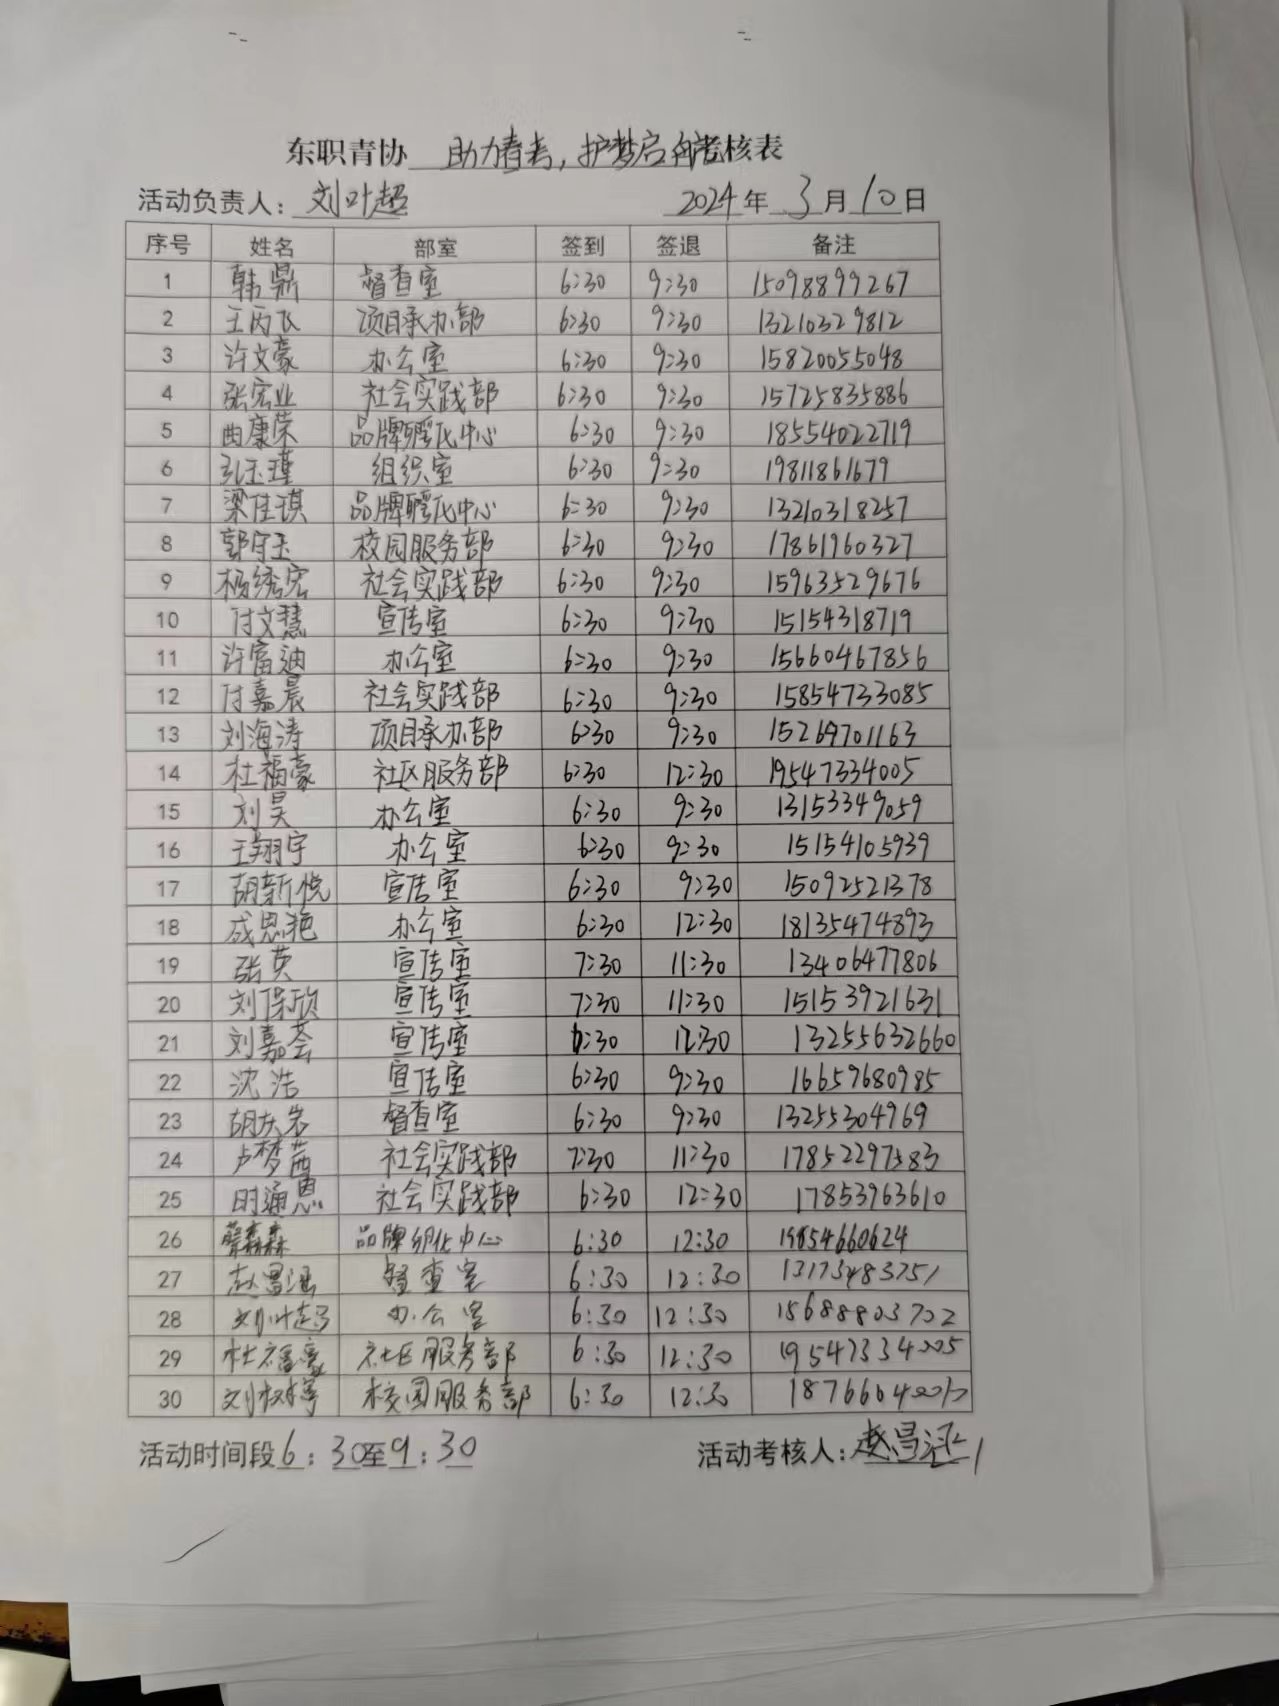 东职青协 助力春考，护梦启航考核表
活动负责人：刘叶超 2024年 3月10日
序号 姓名 部室 签到 签退 备注
1 韩鼎 督查室 6:30 9:30 15098899267
2 王丙飞 项目承办部 6:30 9:30 13210329812
3 许文豪 办公室 6:30 9:30 15820055048
4 张宏业 社会实践部 6:30 9:30 15725835886
5 曲康荣 品牌孵化中心 6:30 9:30 18554022719
6 孔玉瑾 组织室 6:30 9:30 19811861679
7 梁佳琪 品牌孵化中心 6:30 9:30 13210318257
8 郭守玉 校园服务部 6:30 9:30 17861960327
9 杨绣宏 社会实践部 6:30 9:30 15963529676
10 付文慧 宣传室 6:30 9:30 15154318719
11 许富迪 办公室 6:30 9:30 15660467856
12 付嘉晨 社会实践部 6:30 9:30 15854733085
13 刘海涛 项目承办部 6:30 9:30 15269701163
14 杜福豪 社区服务部 6:30 12:30 19547334005
15 刘昊 办公室 6:30 9:30 13153349059
16 王翔宇 办公室 6:30 9:30 15154105939
17 胡新悦 宣传室 6:30 9:30 15092521378
18 成恩艳 办公室 6:30 12:30 18135474893
19 张英 宣传室 7:30 11:30 13406477806
20 刘保欣 宣传室 7:30 11:30 15153921631
21 刘嘉荟 宣传室 6:30 12:30 13255632660
22 沈浩 宣传室 6:30 9:30 16657680985
23 胡庆岩 督查室 6:30 9:30 13255304969
24 卢梦茜 社会实践部 7:30 11:30 17852297583
25 时通恩 社会实践部 6:30 12:30 17853963610
26 品牌孵化中心 6:30 12:30 19854660624
27 赵昌涵 督查室 6:30 12:30 13173483751
28 刘叶超 办公室 6:30 12:30 15688803702
29 杜福豪 社区服务部 6:30 12:30 19547334005
30 刘树宁 校园服务部 6:30 12:30
活动时间段6:30至9:30 活动考核人：赵昌涵